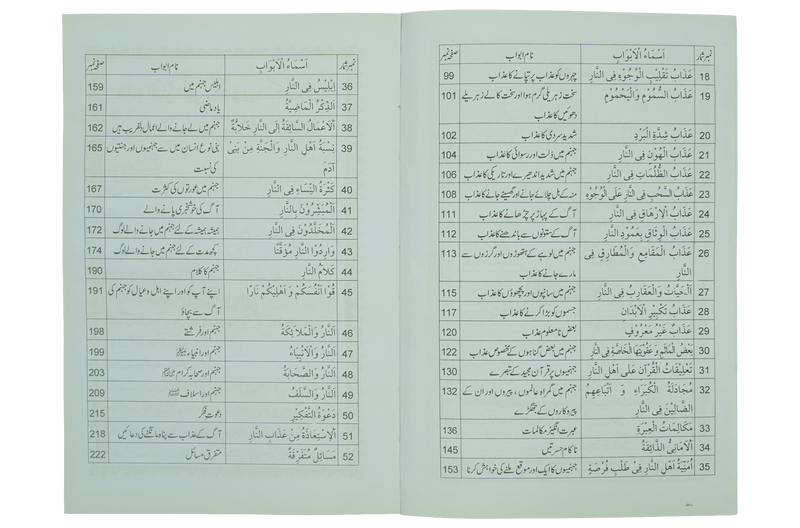 نمبر شمار اَسْمَاءُ الْاَبْوَابِ نام ابواب صفحہ نمبر
18 عَذَابُ تَقْلِيْبِ الْوُجُوْهِ فِى النَّارِ چہروں کو عذاب پر تپانے کا عذاب 99
19 عَذَابُ السَّمُوْمِ وَالْيَحْمُوْمِ سخت زہریلی گرم ہوا اور سخت کالے زہریلے 101
دھوئیں کا عذاب
20 عَذَابُ شِدَّةِ الْبَرْدِ شدید سردی کا عذاب 102
21 عَذَابُ الْهُوْنِ فِى النَّارِ جہنم میں ذلت اور رسوائی کا عذاب 104
22 عَذَابُ الظُّلُمَاتِ فِى النَّارِ جہنم میں شدید اندھیرے اور تاریکی کا عذاب 106
23 عَذَابُ السَّحْبِ فِى النَّارِ عَلَى الْوُجُوْهِ منہ کے بل چلائے جانے اور گھسیٹے جانے کا عذاب 108
24 عَذَابُ الْاِرْهَاقِ فِى النَّارِ آگ کے پہاڑ پر چڑھانے کا عذاب 111
25 عَذَابُ الْوِثَاقِ بِعَمُوْدِ النَّارِ آگ کے ستونوں سے باندھنے کا عذاب 112
26 عَذَابُ الْمَقَامِعِ وَالْمَطَارِقِ فِى جہنم میں لوہے کے ہتھوڑوں اور گرزوں سے 113
النَّارِ مارے جانے کا عذاب
27 اَلْحَيَّاتُ وَالْعَقَارِبُ فِى النَّارِ جہنم میں سانپوں اور بچھوؤں کا عذاب 115
28 عَذَابُ تَكْبِيْرِ الْاَبْدَانِ جسموں کو بڑا کرنے کا عذاب 117
29 عَذَابٌ غَيْرُ مَعْرُوْفٍ بعض نامعلوم عذاب 120
30 بَعْضُ الْمَآثِمِ وَعُقُوْبَتِهَا الْخَاصَّةِ فِى النَّارِ جہنم میں بعض گناہوں کے مخصوص عذاب 122
31 تَعْلِيْقَاتُ الْقُرْآنِ عَلٰى اَهْلِ النَّارِ جہنمیوں پر قرآن مجید کے تبصرے 130
32 مُجَادَلَةُ الْكُبَرَاءِ وَ اَتْبَاعِهِمْ جہنم میں گمراہ عالموں، پیروں اور ان کے 132
الضَّالِّيْنَ فِى النَّارِ پیروکاروں کے جھگڑے
33 مُكَالِمَاتُ الْعِبْرَةِ عبرت انگیز مکالمات 136
34 اَلْاَمَانِىُّ الذَّائِقَةُ ناکام حسرتیں 145
35 اُمْنِيَّةُ اَهْلِ النَّارِ فِى طَلَبِ فُرْصَةٍ جہنمیوں کا ایک اور موقع ملنے کی خواہش کرنا 153
نمبر شمار اَسْمَاءُ الْاَبْوَابِ نام ابواب صفحہ نمبر
36 اِبْلِيْسُ فِى النَّارِ ابلیس جہنم میں 159
37 اَلذِّكْرُ الْمَاضِيَةُ یاد ماضی 161
38 اَلْاَعْمَالُ السَّائِقَةُ اِلَى النَّارِ خَلَابَةٌ جہنم میں لے جانے والے اعمال دلفریب ہیں 162
39 نِسْبَةُ اَهْلِ النَّارِ وَالْجَنَّةِ مِنْ بَنِى بنی نوع انسان میں سے جہنمیوں اور جنتیوں 165
آدَمَ کی نسبت
40 كَثْرَةُ النِّسَاءِ فِى النَّارِ جہنم میں عورتوں کی کثرت 167
41 اَلْمُبَشَّرُوْنَ بِالنَّارِ آگ کی خوشخبری پانے والے 170
42 اَلْمُخَلَّدُوْنَ فِى النَّارِ ہمیشہ ہمیشہ کے لئے جہنم میں جانے والے لوگ 172
43 وَارِدُوْا النَّارِ مُؤَقَّتًا کچھ مدت کے لئے جہنم میں جانے والے لوگ 174
44 كَلَامُ النَّارِ جہنم کا کلام 190
45 قُوْا اَنْفُسَكُمْ وَ اَهْلِيْكُمْ نَارًا اپنے آپ کو اور اپنے اہل و عیال کو جہنم کی 191
آگ سے بچاؤ
46 اَلنَّارُ وَالْمَلَائِكَةُ جہنم اور فرشتے 198
47 اَلنَّارُ وَالْاَنْبِيَاءُ جہنم اور انبیاء 199
48 اَلنَّارُ وَالصَّحَابَةُ جہنم اور صحابہ کرام 203
49 اَلنَّارُ وَالسَّلَفُ جہنم اور اسلاف 209
50 دَعْوَةُ التَّفْكِيْرِ دعوت فکر 215
51 اَلْاِسْتِعَاذَةُ مِنْ عَذَابِ النَّارِ آگ کے عذاب سے پناہ مانگنے کی دعائیں 218
52 مَسَائِلُ مُتَفَرِّقَةٌ متفرق مسائل 222